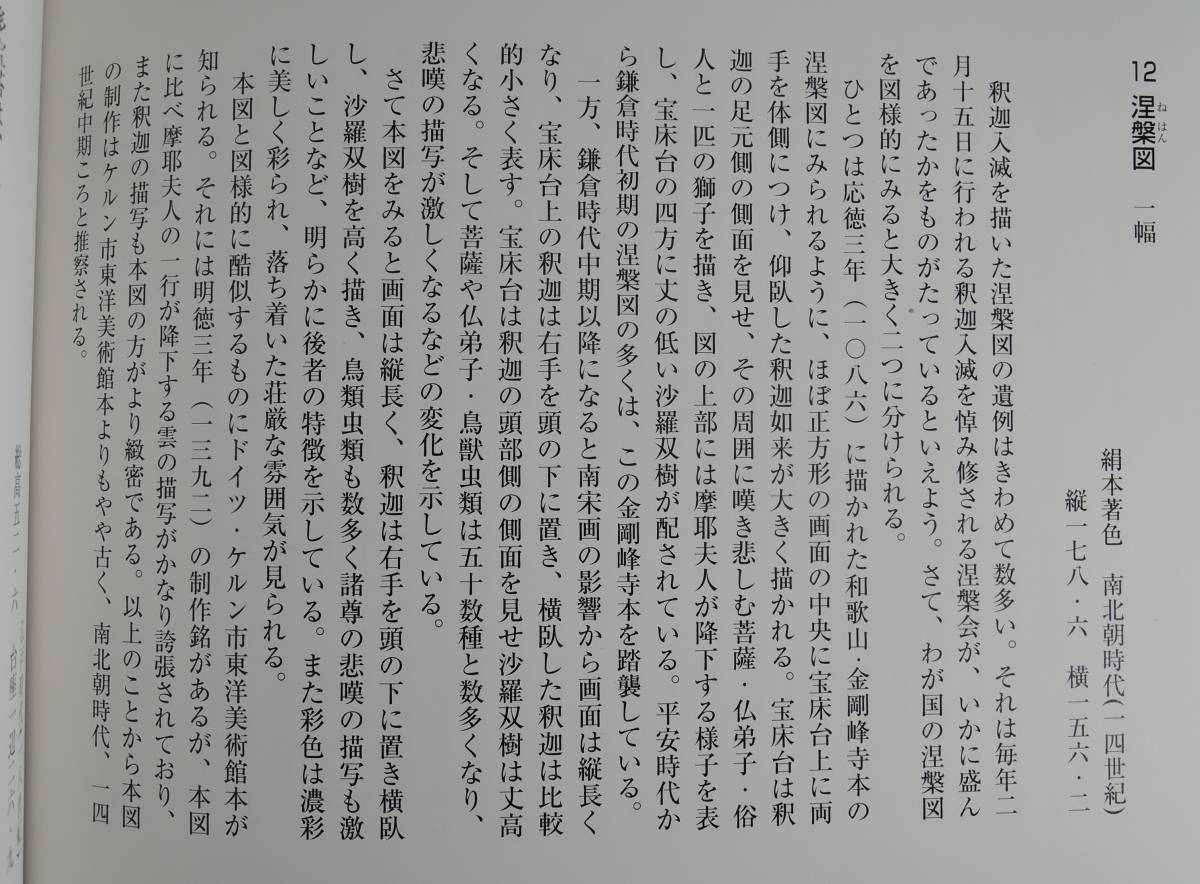 12 涅槃図 一幅
ねはん
絹本著色 南北朝時代(一四世紀)
縦一七八・六 横一五六・二
釈迦入滅を描いた涅槃図の遺例はきわめて数多い。それは毎年二
月十五日に行われる釈迦入滅を悼み修される涅槃会が、いかに盛ん
であったかをものがたっているといえよう。さて、わが国の涅槃図
を図様的にみると大きく二つに分けられる。
ひとつは応徳三年(一〇八六)に描かれた和歌山・金剛峰寺本の
涅槃図にみられるように、ほぼ正方形の画面の中央に宝床台上に両
手を体側につけ、仰臥した釈迦如来が大きく描かれる。宝床台は釈
迦の足元側の側面を見せ、その周囲に嘆き悲しむ菩薩・仏弟子・俗
人と一匹の獅子を描き、図の上部には摩耶夫人が降下する様子を表
し、宝床台の四方に丈の低い沙羅双樹が配されている。平安時代か
ら鎌倉時代初期の涅槃図の多くは、この金剛峰寺本を踏襲している。
一方、鎌倉時代中期以降になると南宋画の影響から画面は縦長く
なり、宝床台上の釈迦は右手を頭の下に置き、横臥した釈迦は比較
的小さく表す。宝床台は釈迦の頭部側の側面を見せ沙羅双樹は丈高
くなる。そして菩薩や仏弟子・鳥獣虫類は五十数種と数多くなり、
悲嘆の描写が激しくなるなどの変化を示している。
さて本図をみると画面は縦長く、釈迦は右手を頭の下に置き横臥
し、沙羅双樹を高く描き、鳥類虫類も数多く諸尊の悲嘆の描写も激
しいことなど、明らかに後者の特徴を示している。また彩色は濃彩
に美しく彩られ、落ち着いた荘厳な雰囲気が見られる。
本図と図様的に酷似するものにドイツ・ケルン市東洋美術館本が
知られる。それには明徳三年(一三九二)の制作銘があるが、本図
に比べ摩耶夫人の一行が降下する雲の描写がかなり誇張されており、
また釈迦の描写も本図の方がより緻密である。以上のことから本図
の制作はケルン市東洋美術館本よりもやや古く、南北朝時代、一四
世紀中期ころと推察される。